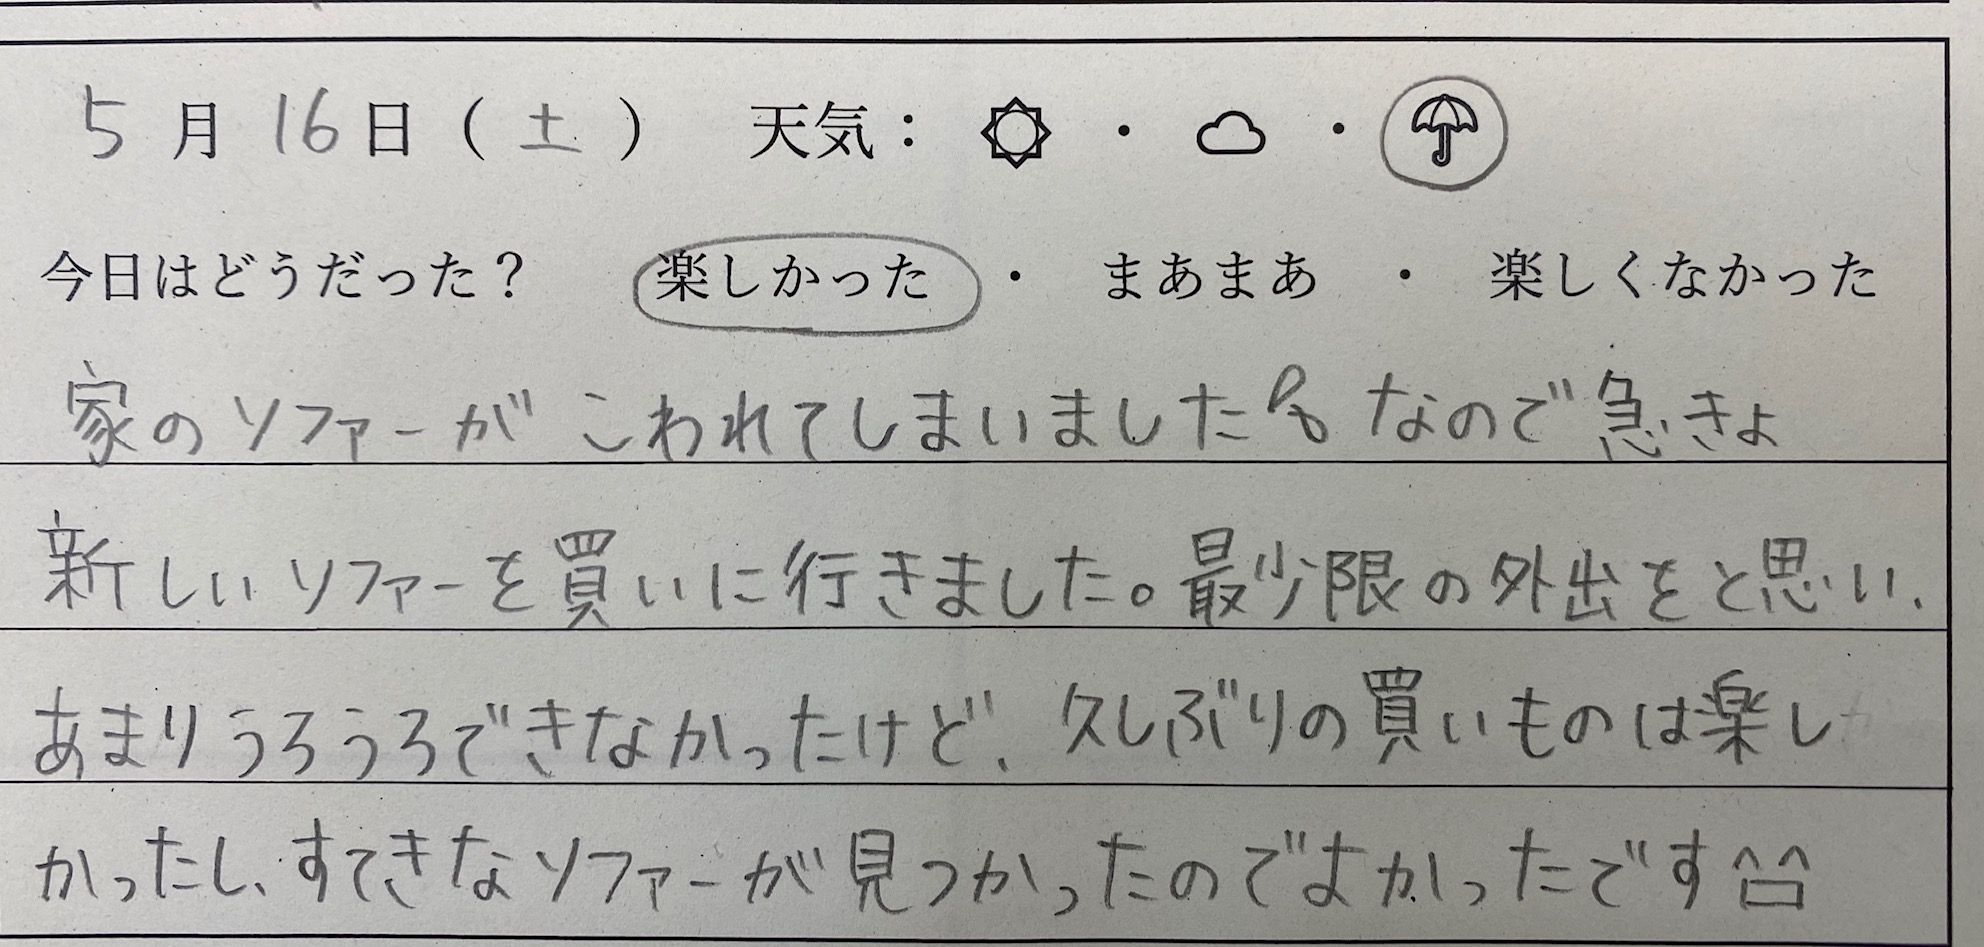 5月16日(土) 天気: ・ ・
今日はどうだった? 楽しかった ・ まあまあ ・ 楽しくなかった
家のソファーがこわれてしまいました なので急きょ
新しいソファーを買いに行きました。最少限の外出をと思い、
あまりうろうろできなかったけど、久しぶりの買いものは楽し
かったし、すてきなソファーが見つかったのでよかったです^□^